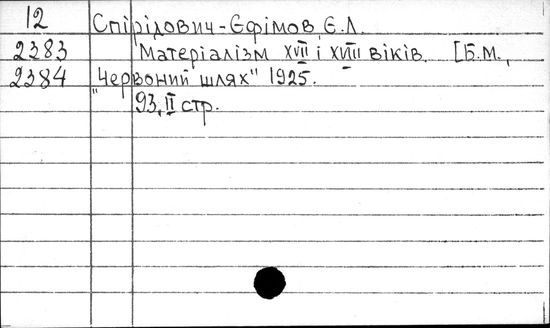 12 Спірідович-Єфімов Є.Л.
2383 Матеріалізм XVII і XVIII віків. [Б.М.,
2384 "Червоний шлях" 1925.
93, II стр.